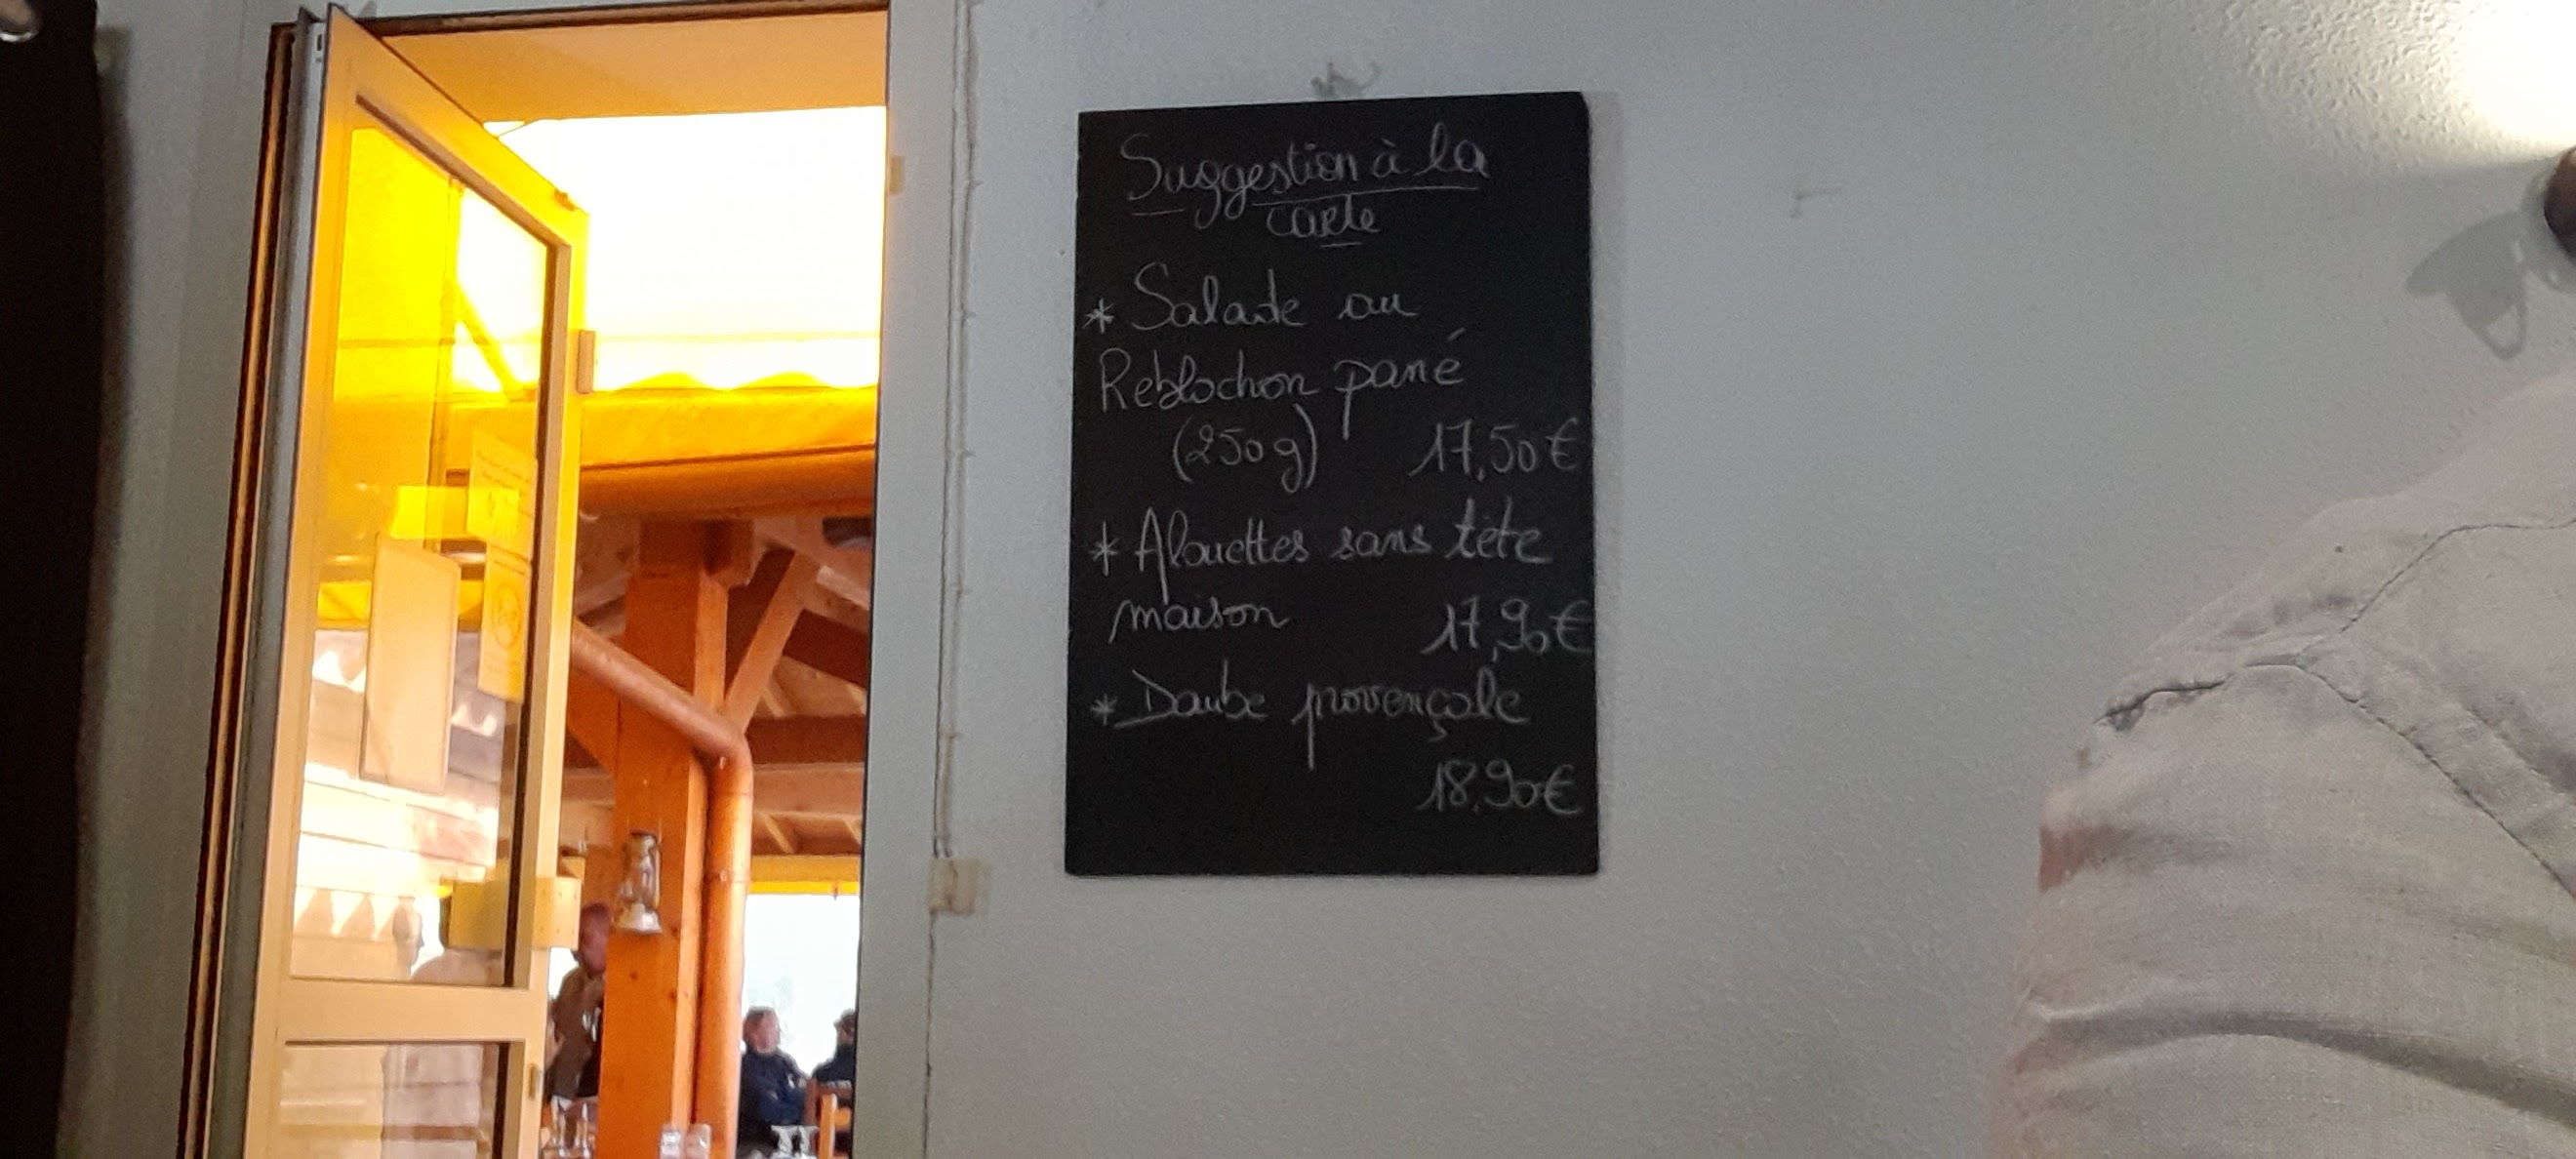 Suggestion à la
carte
* Salade au
Reblochon pané
(250g) 17,50€
* Alouettes sans tête
maison 17,90€
* Daube provençale
18,90€